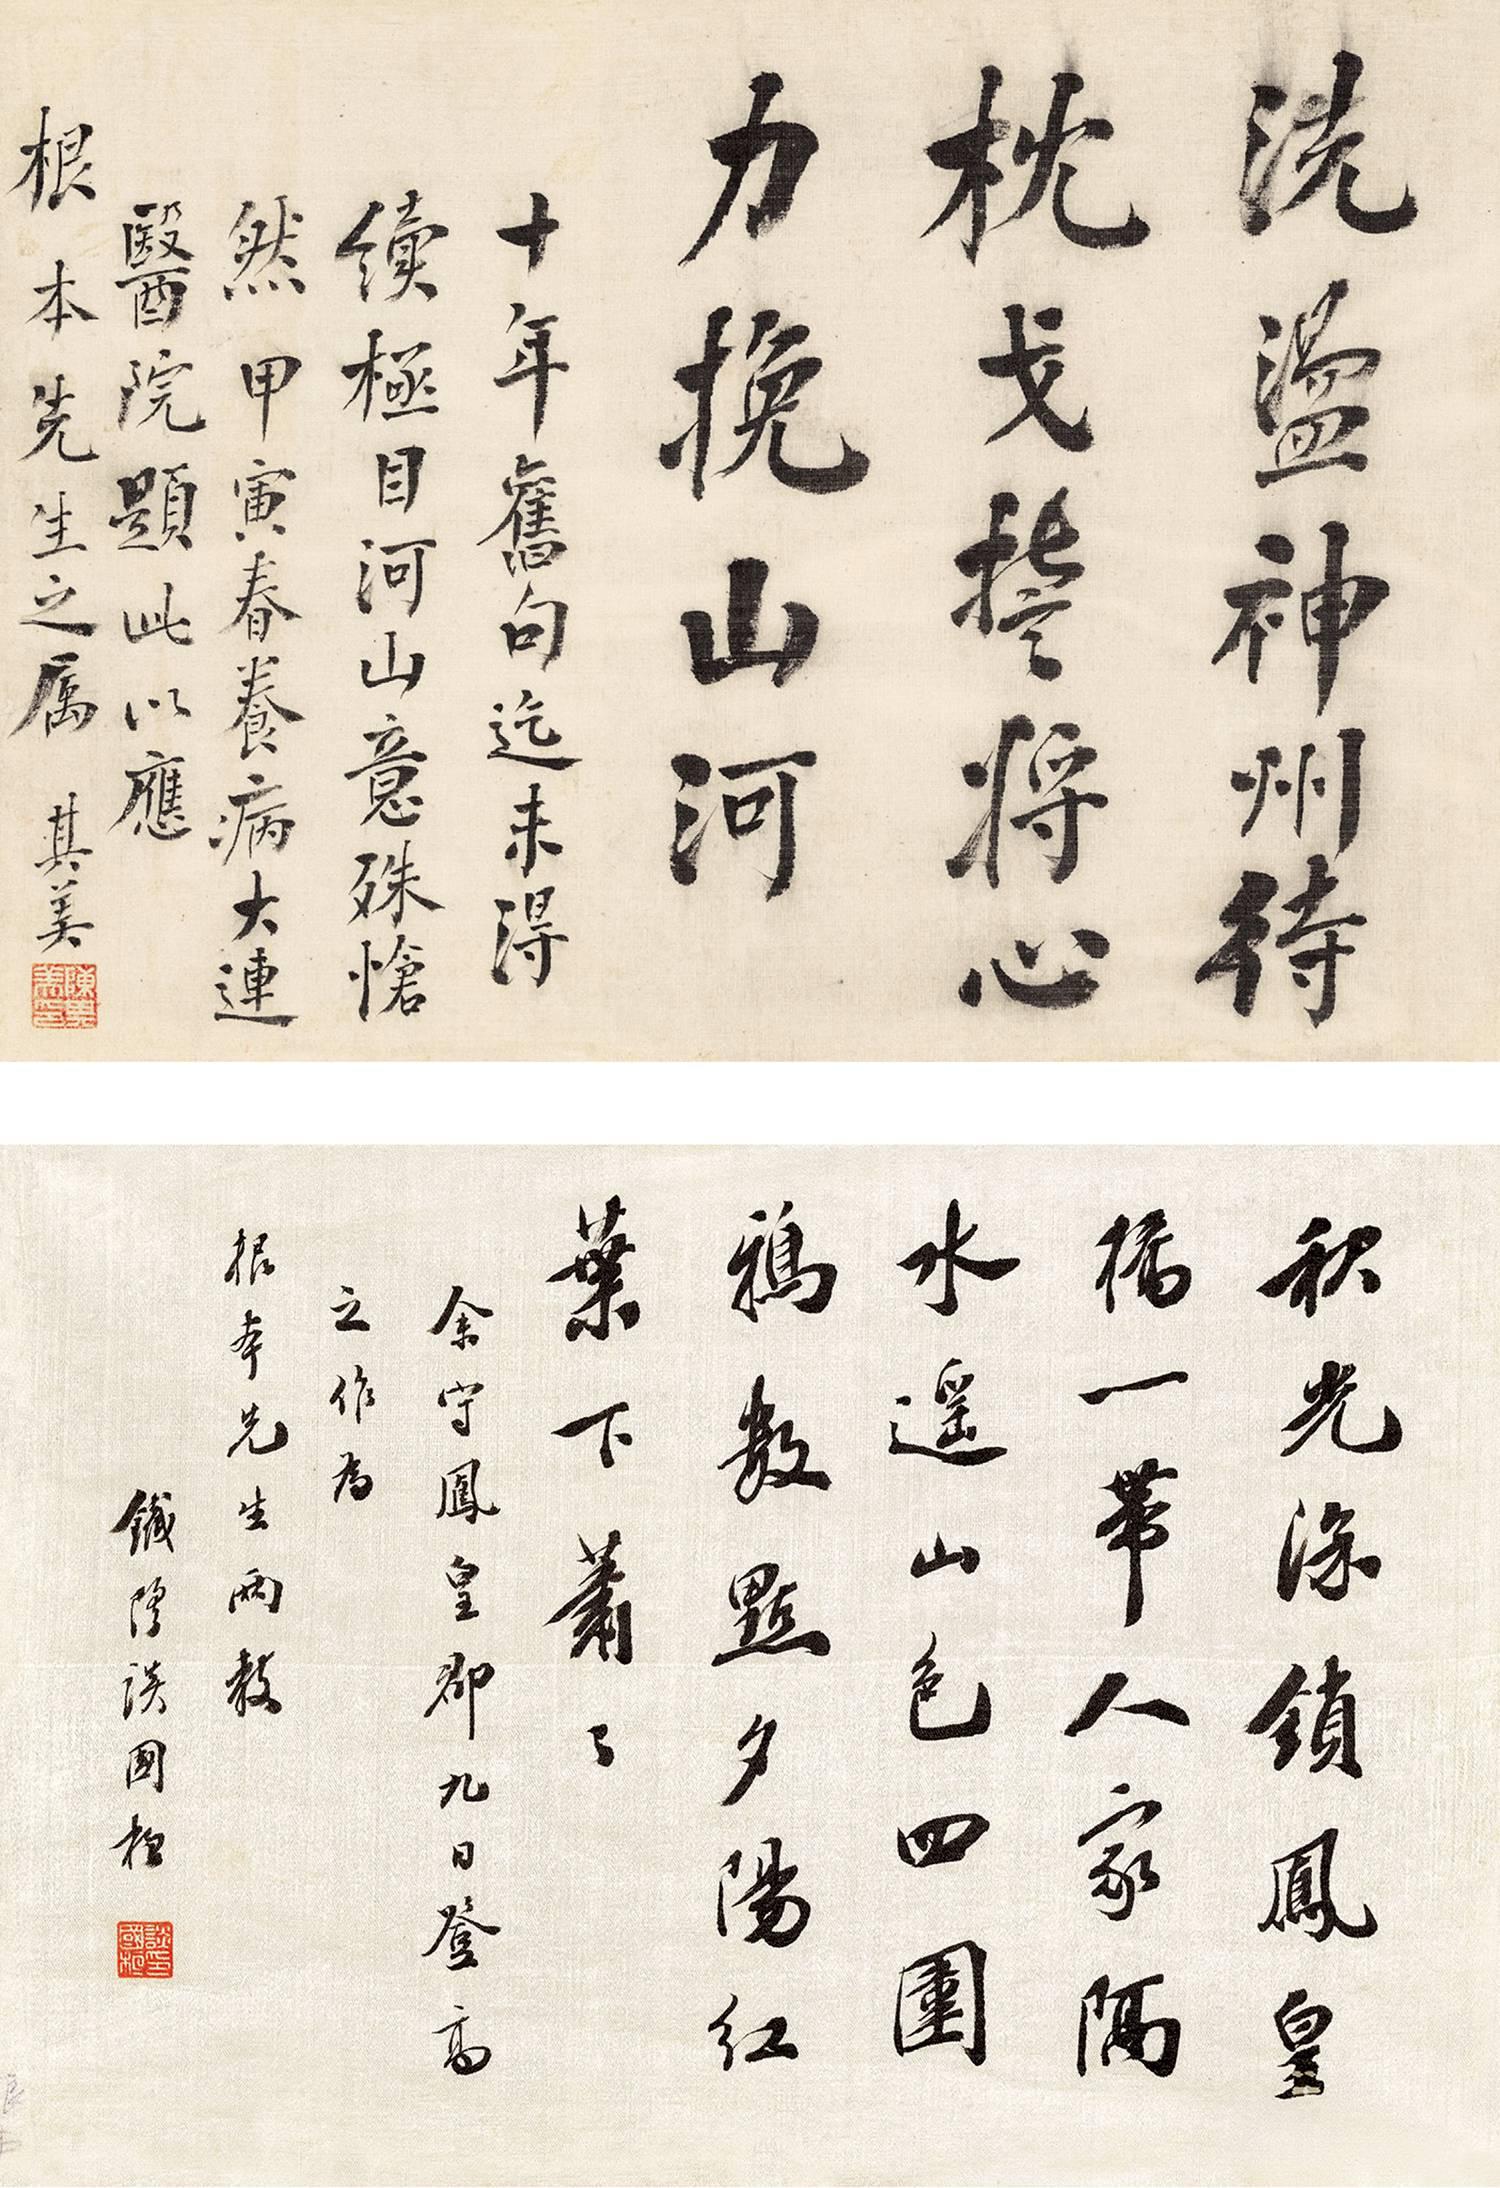 洗盪神州待
枕戈誓將心
力挽山河
十年舊句迄未得
續極目河山意殊愴
然甲寅春養病大連
醫院題此以應
根本先生之厲
其美
秋光深鎖鳳皇
橋一帶人家隔
水遥山色四圍
鴉數點夕陽紅
葉下蕭〻
余守鳳皇郡九日登高
之作為
根本先生兩教
鐵隍談國桓
談印國桓